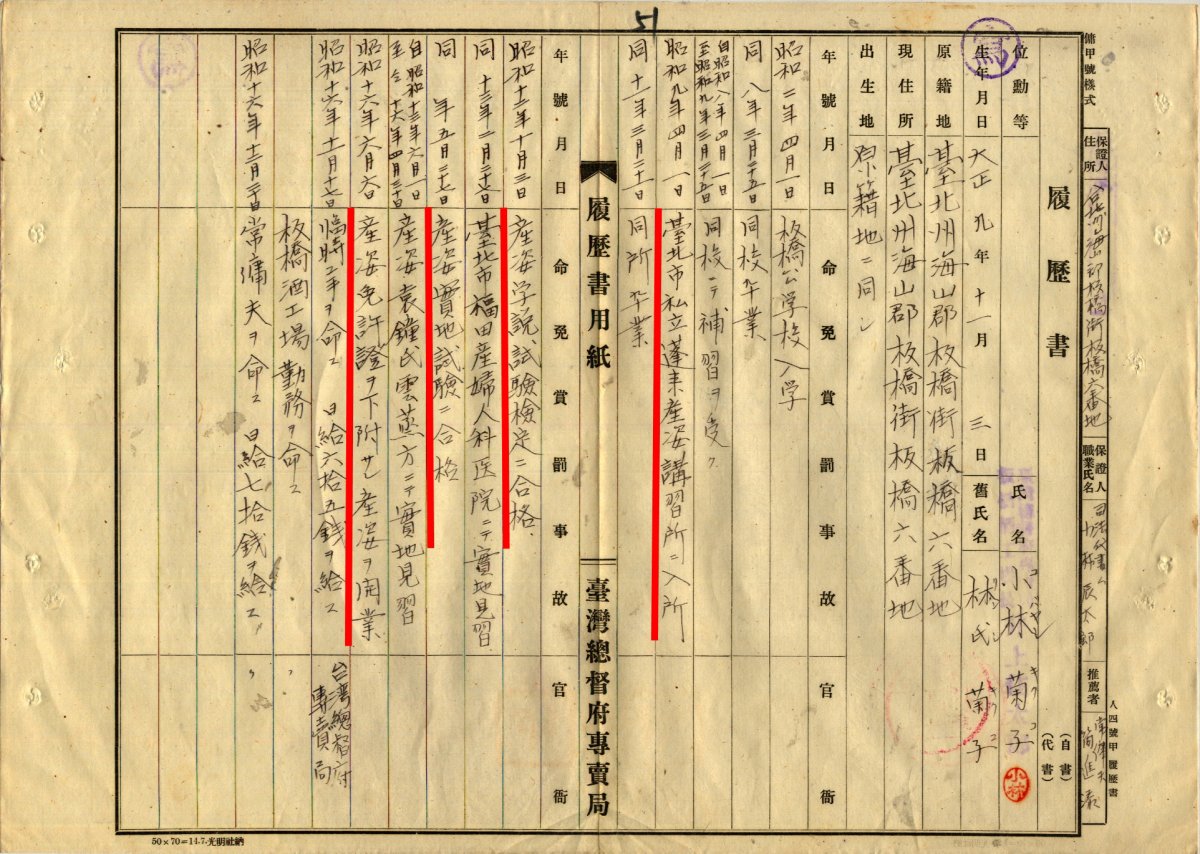 51
傭甲號樣式
人四號甲履歷書
保證人住所
海山郡板橋街板橋六番地
保證人職業氏名
司法代書人
推薦者
簡進
履歷書
(自書)
(代書)
位勳等
氏名 小林菊子
コバヤシ キクコ
小林
寫
生年月日 大正九年十一月三日
舊氏名 林氏菊子
原籍地 臺北州海山郡板橋街板橋六番地
現住所 臺北州海山郡板橋街板橋六番地
出生地 原籍地ニ同シ
年號月日 命免賞罰事故 官衙
昭和二年四月一日 板橋公学校入学
同八年三月二十五日 同校卒業
自昭和八年四月一日
至昭和九年三月二十五日 同校ニテ補習ヲ受ク
昭和九年四月一日 臺北市私立蓬来産婆講習所ニ入所
同十一年三月三十一日 同所卒業
履歷書用紙
臺灣總督府專賣局
年號月日 命免賞罰事故 官衙
昭和十二年十月三日 産婆学説試驗檢定ニ合格
同十三年二月二十六日 臺北市福田産婦人科医院ニテ實地見習
同年五月二十七日 産婆實地試驗ニ合格
自昭和十三年六月一日
至仝十六年四月三十日 産婆袁鐘氏雲燕方ニテ實地見習
昭和十六年六月六日 産婆免許證ヲ下附サレ産婆ヲ開業
昭和十六年十一月十七日 臨時工手ヲ命ス 日給六拾五錢ヲ給ス 台湾總督府專賣局
板橋酒工場勤務ヲ命ス 〃
昭和十六年十二月三十日 常傭夫ヲ命ス 日給七拾錢ヲ給ス 〃
50×70=14.7.光明社納